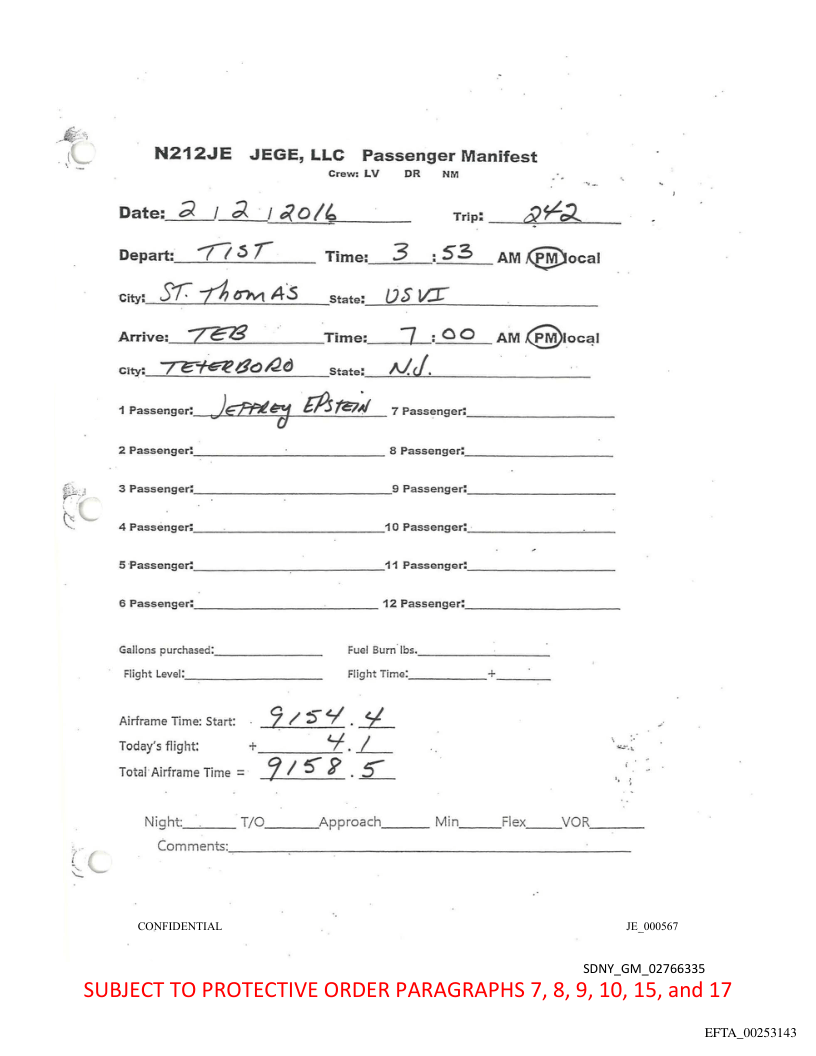 N212JE JEGE, LLC Passenger Manifest
Crew: LV DR NM
Date: 2 / 2 / 2016 Trip: 242
Depart: TIST Time: 3 : 53 AM / PM local
City: ST. ThomAS State: USVI
Arrive: TEB Time: 7 : 00 AM / PM local
City: TETERBORO State: N.J.
1 Passenger: JEFFREY EPSTEIN 7 Passenger:
2 Passenger: 8 Passenger:
3 Passenger: 9 Passenger:
4 Passenger: 10 Passenger:
5 Passenger: 11 Passenger:
6 Passenger: 12 Passenger:
Gallons purchased: Fuel Burn lbs.
Flight Level: Flight Time: +
Airframe Time: Start: 9154.4
Today's flight: + 4.1
Total Airframe Time = 9158.5
Night: T/O Approach Min Flex VOR
Comments:
CONFIDENTIAL JE_000567
SDNY_GM_02766335
SUBJECT TO PROTECTIVE ORDER PARAGRAPHS 7, 8, 9, 10, 15, and 17
EFTA_00253143